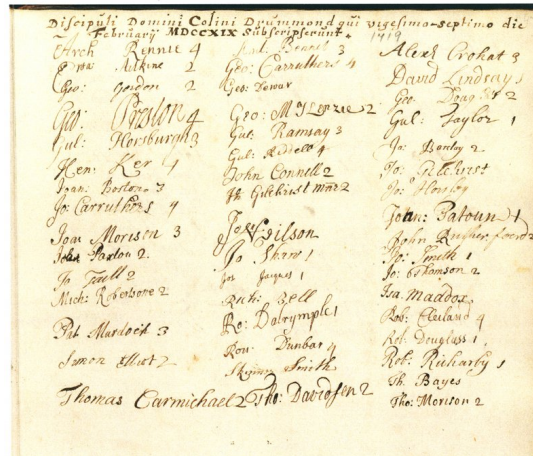 Discipuli Domini Colini Drummond qui vigesimo-septimo die
Februarij MDCCXIX Subscripserunt
1719
Arch Rennie 4
Aitkine 2
Geo: 2
Geo: Preston 4
Gul: Horsburgh 3
Hen: Ker 4
Joan: Boston 3
Jo: Carruthers 4
Joan Morison 3
John Paxton 2
Jo Faill 2
Mich: Robertsone 2
Pat Murdoch 3
Simon Elliot 2
Thomas Carmichael 2
Bennet 3
Geo: Carruthers 4
Geo: Dewar
Geo: McKenzie 2
Gul: Ramsay 3
Gul: Riddell 4
John Connell 2
Gilchrist 2
Jos: Gilson
Jo Shaw 1
Jaques 1
Rich: Bell
Ro: Dalrymple 1
Dunbar 4
Smith
Tho: Davidson 2
Alexr Crokat 3
David Lindsay 1
Geo Douglas 2
Gul: Taylor 1
Ja: 2
Jo: Gilchrist
Jo:
John: Patoun 1
John Rutherfoord 2
Jo: Smith 1
Jo: Thomson 2
Isa. Maddox
Rob: Cleiland 4
Rob: Douglass 1
Rob: Richarby 1
Th. Bayes
Tho: Morison 2